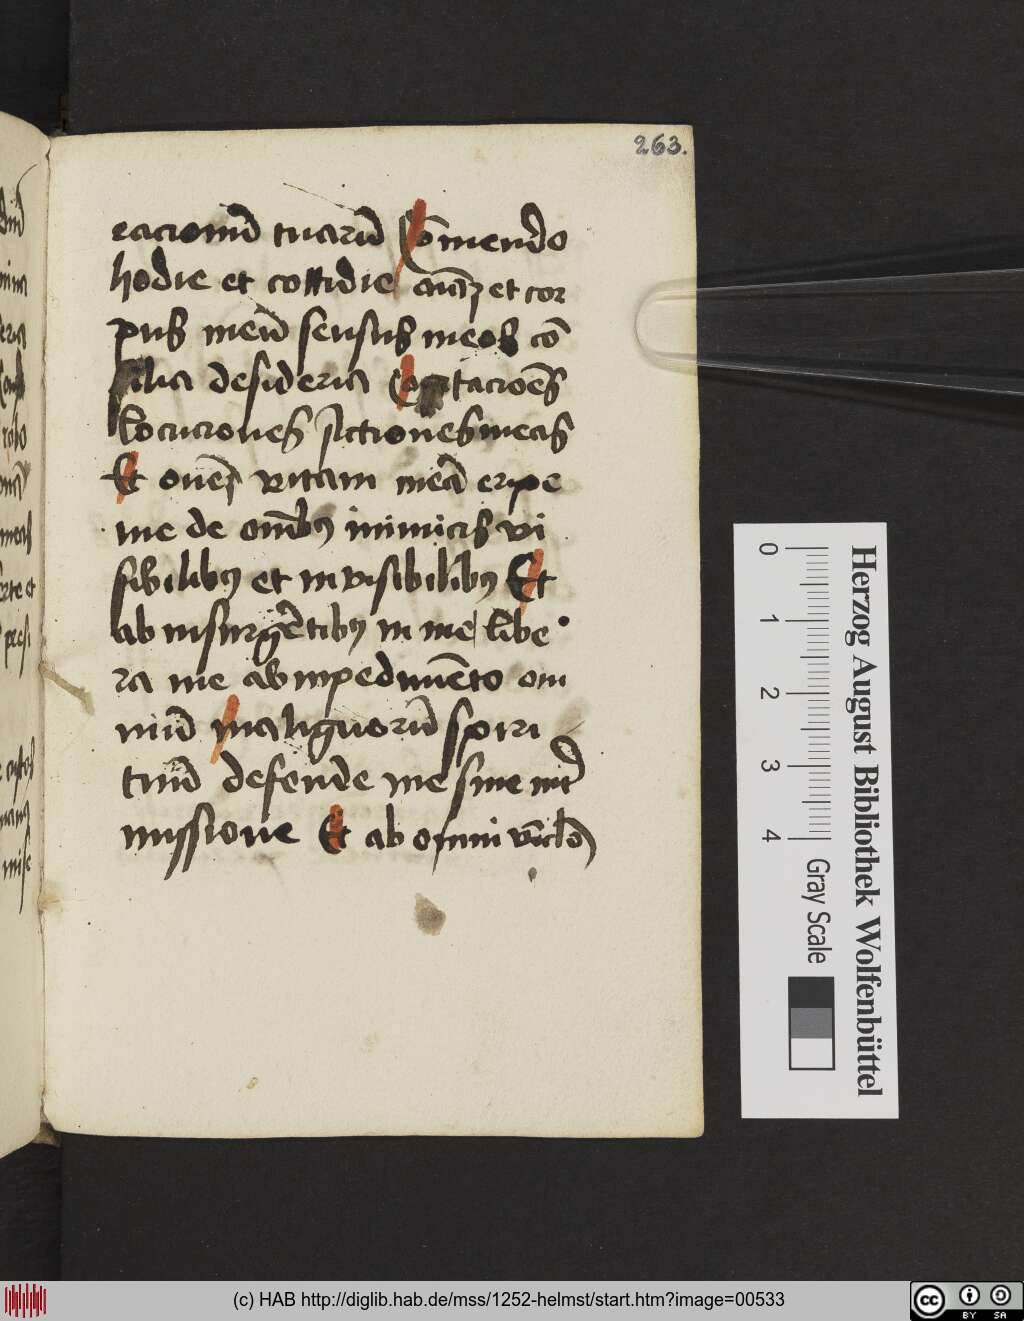 263.
racionū tuarū Cōmendo
hodie et cottidie aīaʒ et cor
pus meū sensus meos cō
silia desideria Cogitacioēs
Locuciones Actiones meas
Et om̄eʒ vitam meā eripe
me de om̄ibꝫ inimicis vi
sibilibꝫ et invisibilibꝫ Et
ab insurgētibꝫ in me libe
ra me ab inpedimēto om
niū malignorū spiri
tuū defende me sine int̄
missione Et ab omni
Herzog August Bibliothek Wolfenbüttel
0 1 2 3 4
Gray Scale
(c) HAB http://diglib.hab.de/mss/1252-helmst/start.htm?image=00533
cc BY SA